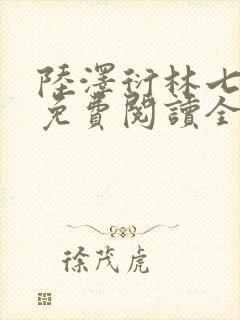 陸澤衍林七
免費閱讀全
徐茂虎